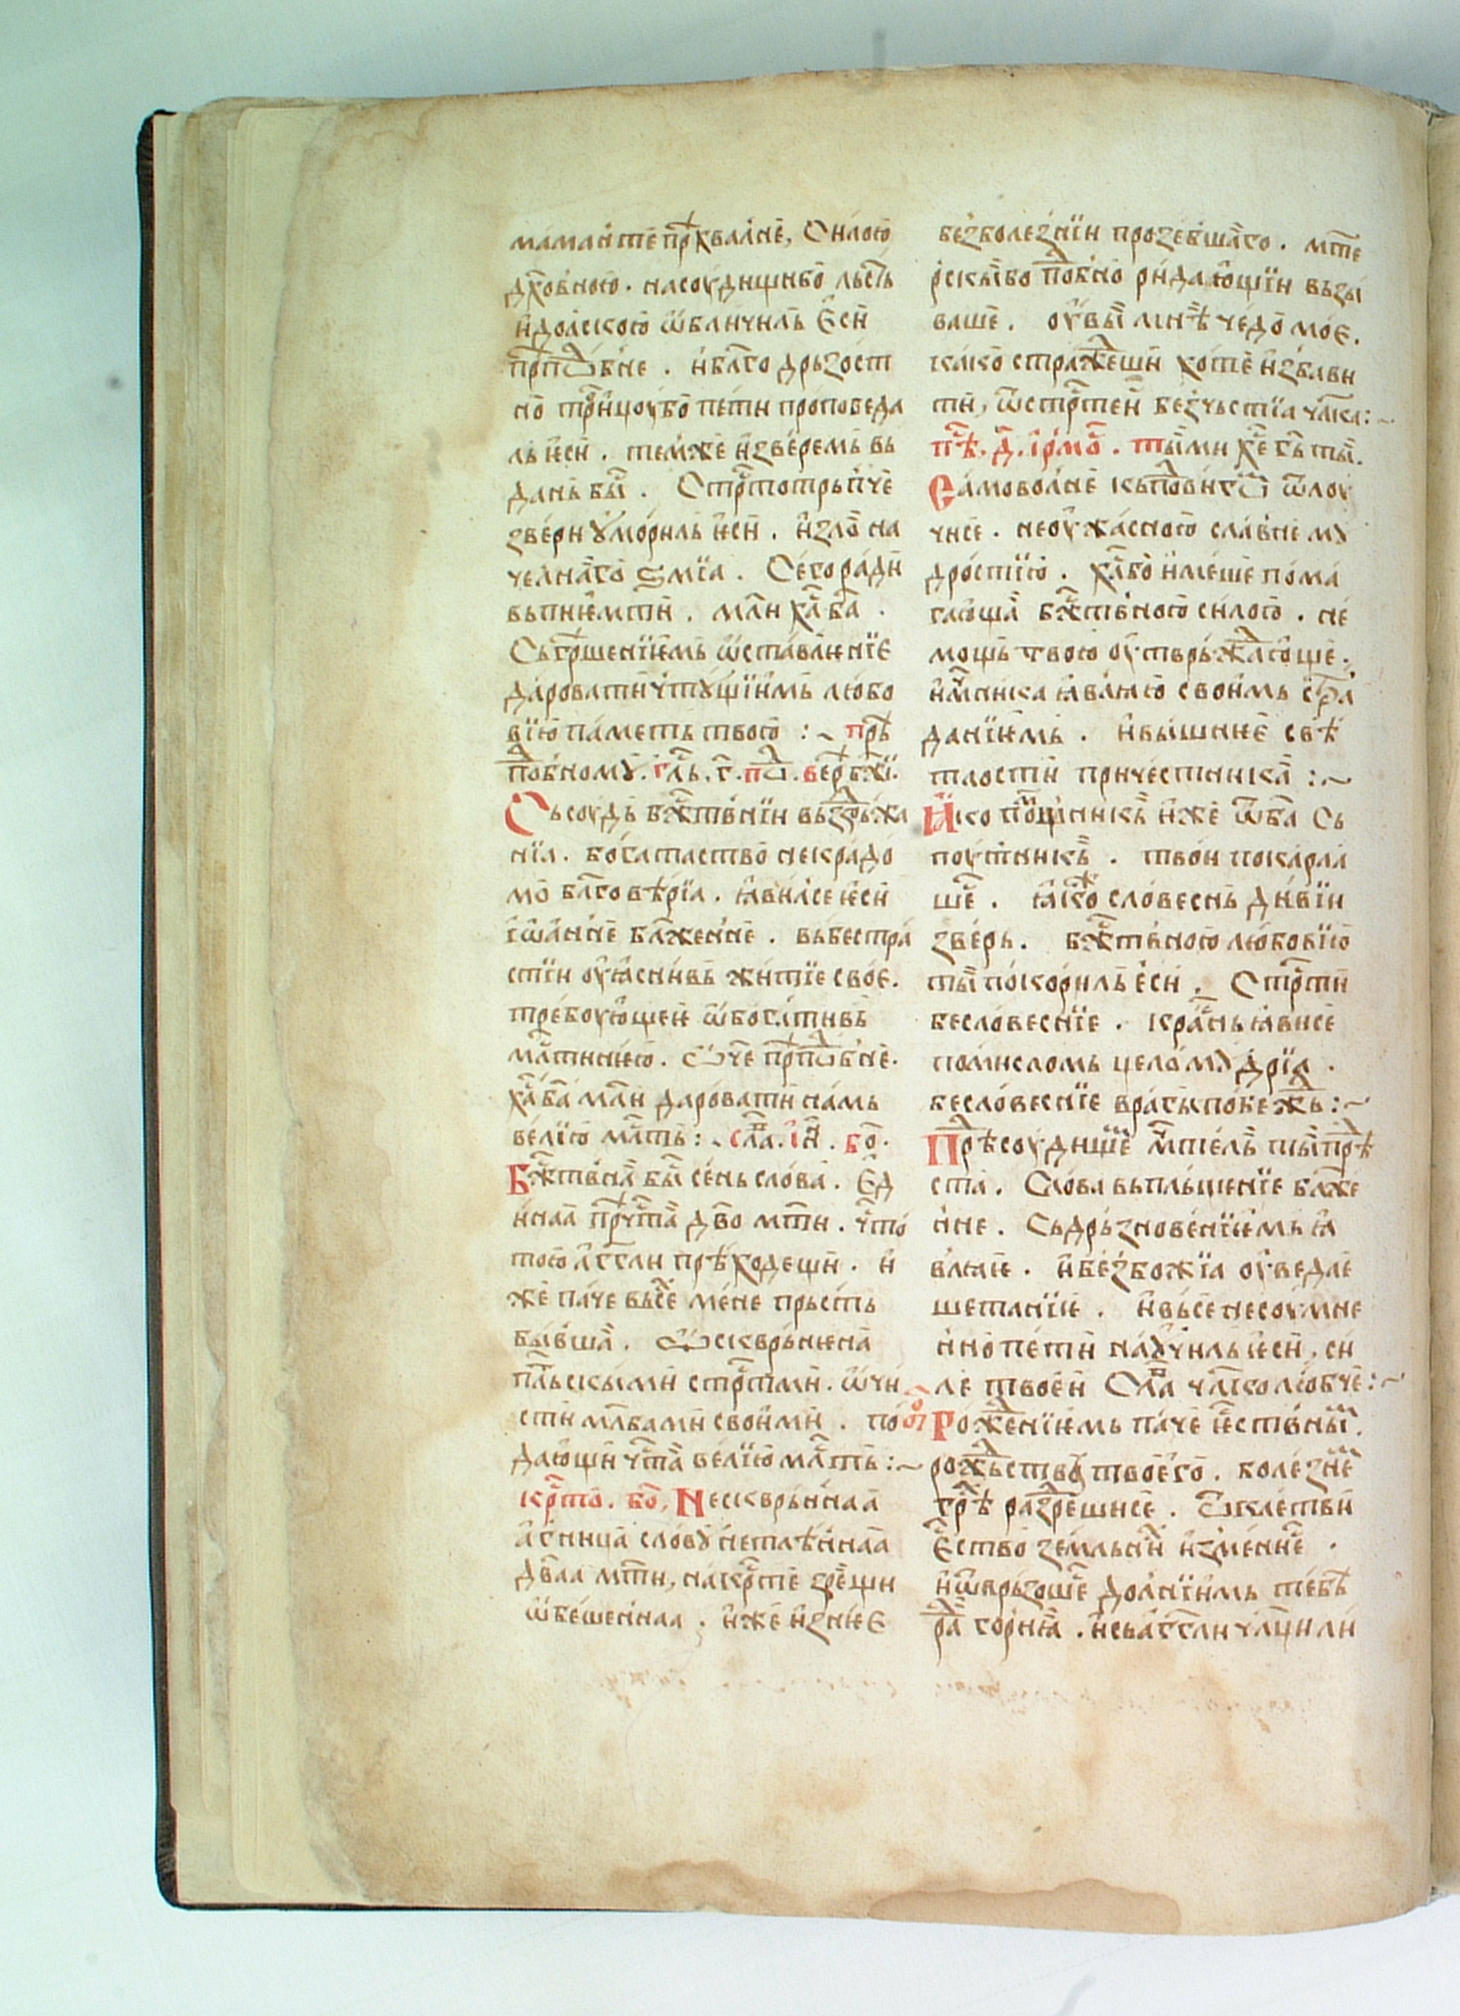 мамантѐ прⷭ҇хвалнѐ, Силою
дх҃овною. на соудищибо̀ льсть
идолскою ѡ҆бличиль Е҆сѝ
прⷣпбⷪ҇не. и҆ бл҃го дрьзост
но̀ трⷪ҇ицоу бо̀ пѣти проповеда
ль ѥ҆сѝ. темже и҆ зверемь вь
дань бы҇. Стрⷭ҇тотрьпче
звери ꙋ҆мориль ѥ҆сѝ. и҆ зло на
челнаго̀ ѕмїа. Сего ради
вьпиѥмти. мл҃и ха҇ ба҃.
Сьгрⷺшенїѥмь ѡ҆ставлѥнїе
даровати чтꙋщїимь любо
вїю паметь твою :~ прⷣѣ
пⷣобномꙋ. гла҇. г҃. пⷣо. вер҇ бж҃і.
Сьсоудь бжⷭ҇твнїи вьздрьжа
нїа. богатьство̀ некрадо
мо̀ бл҃говѣрїа. ꙗ҆вилсе ѥ҆сѝ
і҆ѡ҆анне бл҃женне. вь бестра
стїи оуꙗснивь житїе своѐ.
требоующеѥ ѡ҆богативь
млⷭ҇тинѥю. Ѿч҃е прⷣпⷪ҇бне.
ха҇ ба҃ мл҃и даровати намь
велїю млⷭ҇ть :~ сла҇. і҆н҇. бо҇.
Бжⷭ҇твнаꙗ бы҇ сень слова. Ед
инаа прⷣчⷭ҇таа дв҃о мт҃и. чⷭ҇то
тою а҆гг҃ли прѣходещи. и҆
же паче вьсе мене прьсть
бывша. Ѿсквръненаа
пльскыми стрⷭ҇тьми. ѡ҆чи
сти мл҃бами своими. по
дающи чⷭ҇таа велїю млⷭ҇ть :~
крⷭ҇то. бо҇. Нескврьннаа
а҆гница словꙋ нетлѣннаа
дв҃аа мт҃и, на крⷭ҇те зрещи
ѡ҆бешеннаа. и҆же и҆зниѥ
безболезнїи прозебшаго. мт҃е
рскы бо пⷣобно ридающїи вьзы
ваше. оу҆вы мнѣ чедо моѐ.
како страждеши хоте и҆збави
ти, ѿ стрⷭ҇теи бечьстїа чл҃ка :~
пѣ҇. д҃. ірмо҇. ты ми хе҃ гь҇ ты.
Самоволне кь пⷣовигѡⷨ ѿлоу
чисе. неоу҆жасною славне мꙋ
дростїю. ха҇ бо̀ имеше пома
гающа бжⷭ҇твною силою. не
мощь твою оу҆тврьждающе.
и҆ мⷱ҇нка ꙗ҆влꙗю своимь стра
данїѥмь. и҆ вышнеѐ свѣ
тлости причестника :~
Ꙗко помощника и҆же ѿ ба҃ сь
поутника. твои покарꙗ
ше. ꙗ҆ко словеснь дивїи
зверь. бжⷭ҇твною любовїю
ты покориль ѥ҆сѝ. Стрⷭ҇ти
бесловеснїе. краснь ꙗ҆висе
помисломь целомꙋдрїа.
бесловеснїе врагы победжь :~
Прⷣѣ соудище мчⷭ҇тель ты прⷣѣ
ста. Слова вьплыщенїе блаже
нне. Сь дрьзновенїѥмь ꙗ
влꙗѥ. и҆ безбожїа оу҆ведае
шетанїѥ. и҆ вьсе несоумне
нно пети наꙋчиль ѥ҆сѝ, си
ле твоѥи Сла҇ чл҃колюбче :~
бо҇ Рожденїѥмь паче ѥ҆стьвныⷨ.
рождьства твоѥго. болезнеⷨ
грѣ҇ разрешисе. Ѿ клетви
Е҆ство земльнии и҆змение.
и҆ ѿврьзоше долнїимь тебе
ра҇ горнꙗꙗ. и҆ сь а҆гг҃ли чл҃ци ли